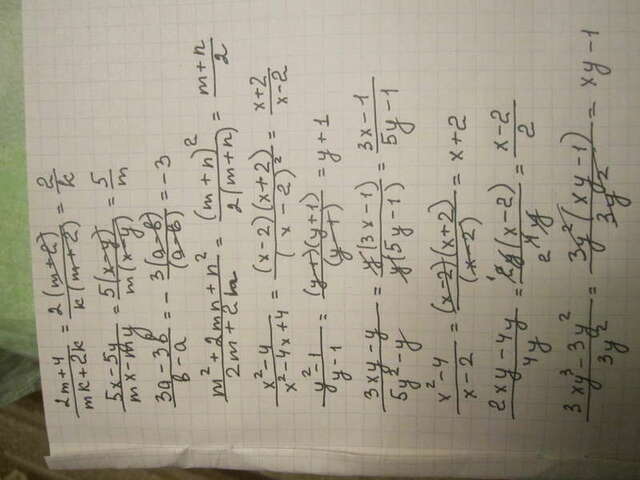 (2m+4)/(mk+2k) = 2(m+2)/k(m+2) = 2/k
(5x-5y)/(mx-my) = 5(x-y)/m(x-y) = 5/m
(3a-3b)/(b-a) = - 3(a-b)/(a-b) = -3
(m²+2mn+n²)/(2m+2n) = (m+n)²/2(m+n) = (m+n)/2
(x²-4)/(x²-4x+4) = (x-2)(x+2)/(x-2)² = (x+2)/(x-2)
(y²-1)/(y-1) = (y-1)(y+1)/(y-1) = y+1
(3xy-y)/(5y²-y) = y(3x-1)/y(5y-1) = (3x-1)/(5y-1)
(x²-4)/(x-2) = (x-2)(x+2)/(x-2) = x+2
(2xy-4y)/4y = ¹2y(x-2)/2 4y = (x-2)/2
(3xy³-3y²)/3y² = 3y²(xy-1)/3y² = xy-1